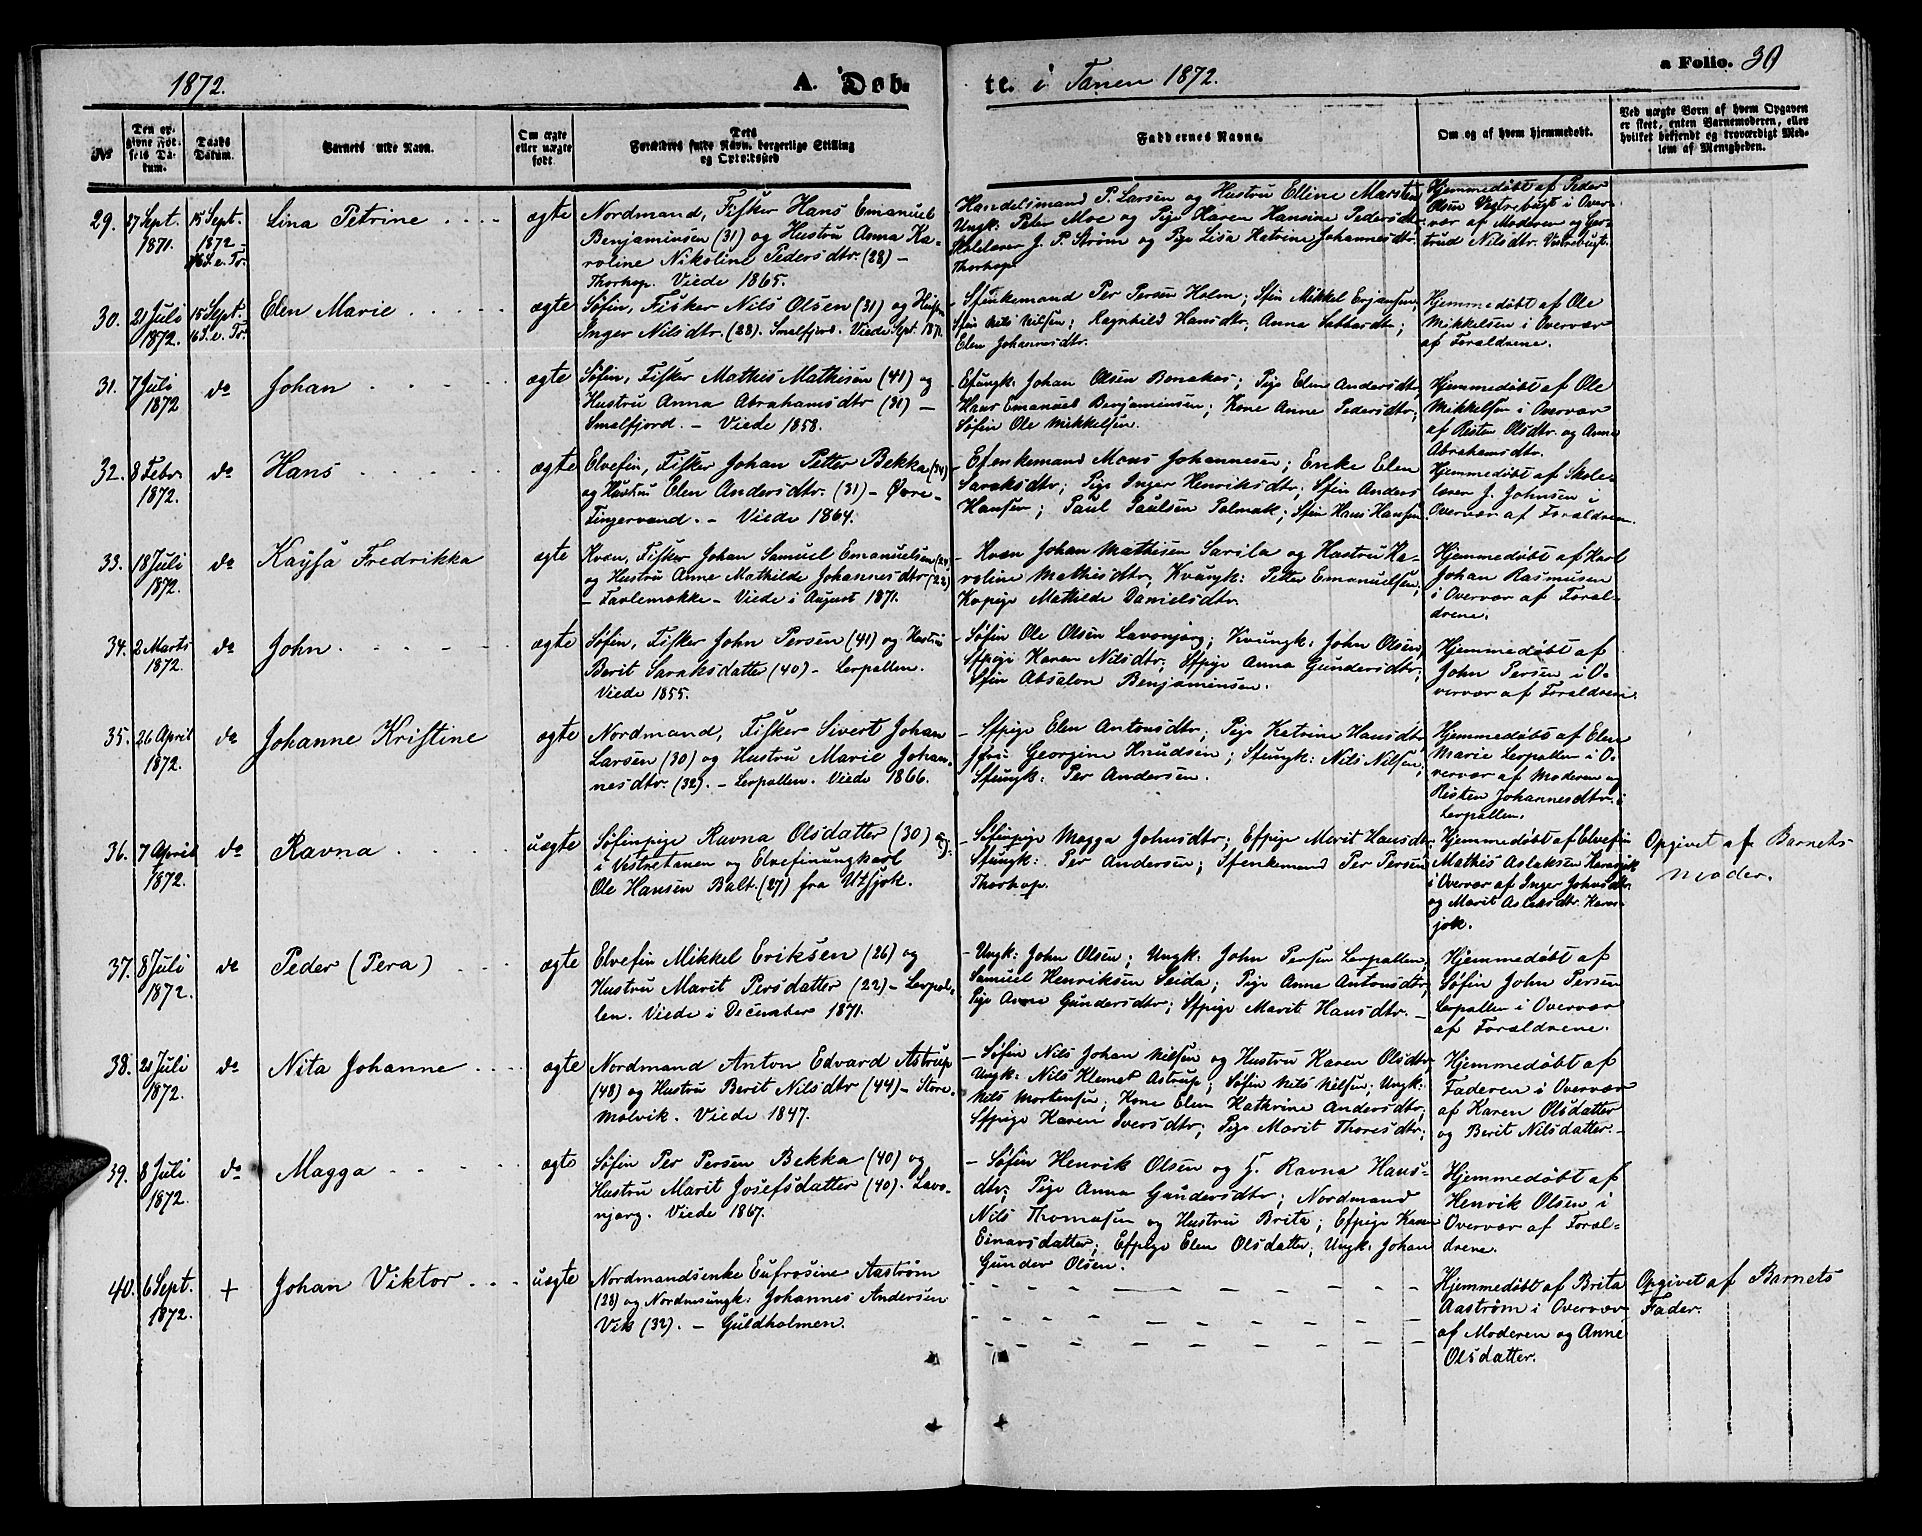 1872.
A. Døb-
te. i Tanen 1872.
a Folio. 30
No
Den op-
givne Fød-
sels Da-
tum.
Daabs
Datum.
Barnets fulde Navn.
Om ægte
eller uægte
født.
Dets
Forældres fulde Navn, borgerlige Stilling
og Opholdssted
Faddernes Navne.
Om og af hvem hjemmedøbt.
Ved uægte Børn af hvem Opgaven
er skeet, enten Barnemoderen, eller
hvilket bekjendt og troværdigt Med-
lem af Menigheden.
29.
27 Sept.
1871.
15 Sept.
1872
16 S. e. Tr.
Lina Petrine
ægte
Nordmand, Fisker Hans Emanuel
Benjaminsen (31) og Hustru Anna Ka-
roline Nikoline Pedersdtr. (28) -
Thorhop. Viede 1865.
Handelsmand P. Larsen og Hustru Elline Marsten
Ungk: Peter Moe og Pige Karen Hansine Pedersdtr
Skolelærer J. P. Strøm og Pige Lisa Katrine Johannesdtr.
Thorhop
Hjemmedøbt af Peder
Olsen Vestrebugt i Over-
vær af Moderen og Ger-
trud Nilsdtr. Vestrebugt.
30.
21 Juli
1872.
15 Sept.
16 S. e. Tr.
Elen Marie
ægte
Søfin, Fisker Nils Olsen (31) og Hustru
Inger Nilsdtr. (28). Smalfjord. Viede Spt. 1871.
- Sfenkemand Per Persen Holm; Sfin Mikkel Erjansen;
Sfin Nils Nilsen; Ragnhild Hansdtr; Anna Sabbasdtr;
Elen Johannesdtr.
Hjemmedøbt af Ole
Mikkelsen i Overvær
af Forældrene.
31.
7 Juli
1872
do
Johan
ægte
Søfin, Fisker Mathis Mathisen (41) og
Hustru Anna Abrahamsdtr (31) -
Smalfjord. - Viede 1858.
- Efungk: Johan Olsen Bonakas; Pige Elen Andersdtr;
Hans Emanuel Benjaminsen; Kone Anne Pedersdtr;
Søfin Ole Mikkelsen.
Hjemmedøbt af Ole
Mikkelsen i Overvær
af Risten Olsdtr. og Anna
Abrahamsdtr.
32.
8 Febr.
1872.
do
Hans
ægte
Elvefin, Fisker Johan Petter Bekka (34)
og Hustru Elen Andersdtr. (31) - Øvre-
Fingervand. - Viede 1864.
- Efenkemand Mons Johannesen; Enke Elen
Saraksdtr; Pige Inger Henriksdtr; Sfin Anders
Hansen; Paul Paulsen Polmak; Sfin Hans Hansen
Hjemmedøbt af Skole-
lærer J. Johnsen i
Overvær af Forældren.
33.
18 Juli
1872.
do
Kaysa Fredrikka
ægte
Kvæn, Fisker Johan Samuel Emanuelsen (24)
og Hustru Anne Mathilde Johannesdtr. (22)
- Tarlemokke - Viede i August 1871.
- Kvæn Johan Mathisen Sarila og Hustru Ka-
roline Mathisdtr; Kvungk: Petter Emanuelsen;
Kvpige Mathilde Danielsdtr.
Hjemmedøbt af Karl
Johan Rasmusen
i Overvær af Foræl-
drene.
34.
2 Marts
1872.
do
John.
ægte
Søfin, Fisker John Persen (41) og Hustru
Berit Saraksdatter (40) - Lerpollen.
Viede 1855.
- Søfin Ole Olsen Lavonjarg; Kvungk: John Olsen;
Sfpige Karen Nilsdtr; Sfpige Anna Gundersdtr;
Sfin Absalon Benjaminsen.
Hjemmedøbt af
John Persen i O-
vervær af Forældrene.
35.
26 April
1872.
do
Johanne Kristine
ægte
Nordmand, Fisker Sivert Johan
Larsen (30) og Hustru Marie Johan-
nesdtr. (32). - Lerpollen. Viede 1866.
- Sfpige Elen Antonsdtr; Pige Katrine Hansdtr
Georgine Knudsen; Sfungk: Nils Nilsen;
Sfungk: Per Andersen.
Hjemmedøbt af Elen
Marie Lerpollen i O-
vervær af Moderen og
Risten Johannesdtr. i
Lerpollen.
36.
7 April
1872.
do
Ravna
uægte
Søfinpige Ravna Olsdatter (30)
i Vestretanen og Elvefinungkarl
Ole Hansen Balt. (27) fra Utsjok.
- Søfinpige Magga Johnsdtr; Efpige Marit Hansdtr
Sfungk: Per Andersen; Sfenkemand Per Persen
Thorhop.
Hjemmedøbt af Elvefin
Mathis Aslaksen Karasjok
i Overvær af Inger Johnsdtr.
og Marit Aslaksdtr. Karas-
jok.
Opgivet af Barnets
moder.
37.
8 Juli
1872.
do
Peder (Pera)
ægte
Elvefin Mikkel Eriksen (26) og
Hustru Marit Persdatter (22) - Lerpol-
len. Viede i December 1871.
- Ungk: John Olsen; Ungk: John Persen Lerpollen;
Samuel Henriksen Seida; Pige Anne Antonsdtr;
Pige Anne Gundersdtr; Sfpige Marit Hansdtr. -
Hjemmedøbt af
Søfin John Persen
Lerpollen i Overvær
af Forældrene.
38.
21 Juli
1872.
do
Nita Johanne
ægte
Nordmand Anton Edvard Astrup
(48) og Hustru Berit Nilsdtr (44) - Store-
molvik. Viede 1847.
- Søfin Nils Johan Nilsen og Hustru Karen Olsdtr;
Ungk: Nils Klemet Astrup; Søfin Nils Nilsen; Ungk:
Nils Mortensen; Kone Elen Kathrine Andersdtr;
Sfpige Karen Iversdtr; Pige Marit Thoresdtr;
Hjemmedøbt af
Faderen i Overvær
af Karen Olsdatter
og Berit Nilsdatter. -
39.
8 Juli
1872.
do
Magga
ægte
Søfin Per Persen Bekka (40) og
Hustru Marit Josefsdatter (40). Lavo-
njarg. Viede 1867.
- Søfin Henrik Olsen og H. Ravna Hans-
dtr; Pige Anna Gundersdtr; Nordmand
Nils Thomasen og Hustru Brita; Efpige Karen
Einarsdatter; Efpige Elen Olsdatter; Ungk: Johan
Gunder Olsen.
Hjemmedøbt af
Henrik Olsen i
Overvær af Foræl-
drene.
40.
6 Sept.
1872.
+
Johan Viktor
uægte
Nordmandsenke Eufrosine Aaström
(28) og Nordmsungk: Johannes Andersen
Vik (32). - Guldholmen.
Hjemmedøbt af Brita
Aaström i Overvær
af Moderen og Anne
Olsdatter.
Opgivet af Barnets
Fader.